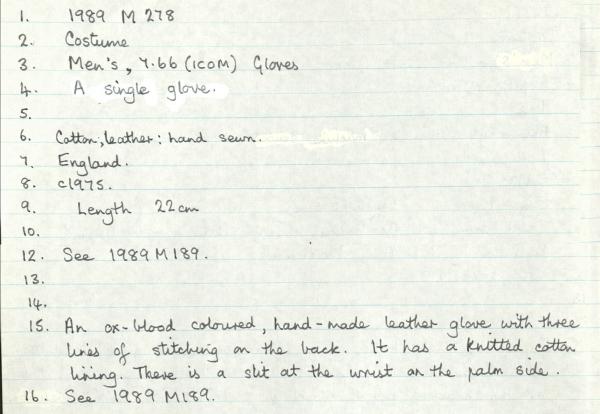 1. 1989 M 278
2. Costume
3. Men's, 7.66 (ICOM) Gloves
4. A single glove.
5.
6. Cotton; leather: hand sewn.
7. England.
8. c1975.
9. Length 22cm
10.
12. See 1989 M 189.
13.
14.
15. An ox-blood coloured, hand-made leather glove with three
lines of stitching on the back. It has a knitted cotton
lining. There is a slit at the wrist on the palm side.
16. See 1989 M189.